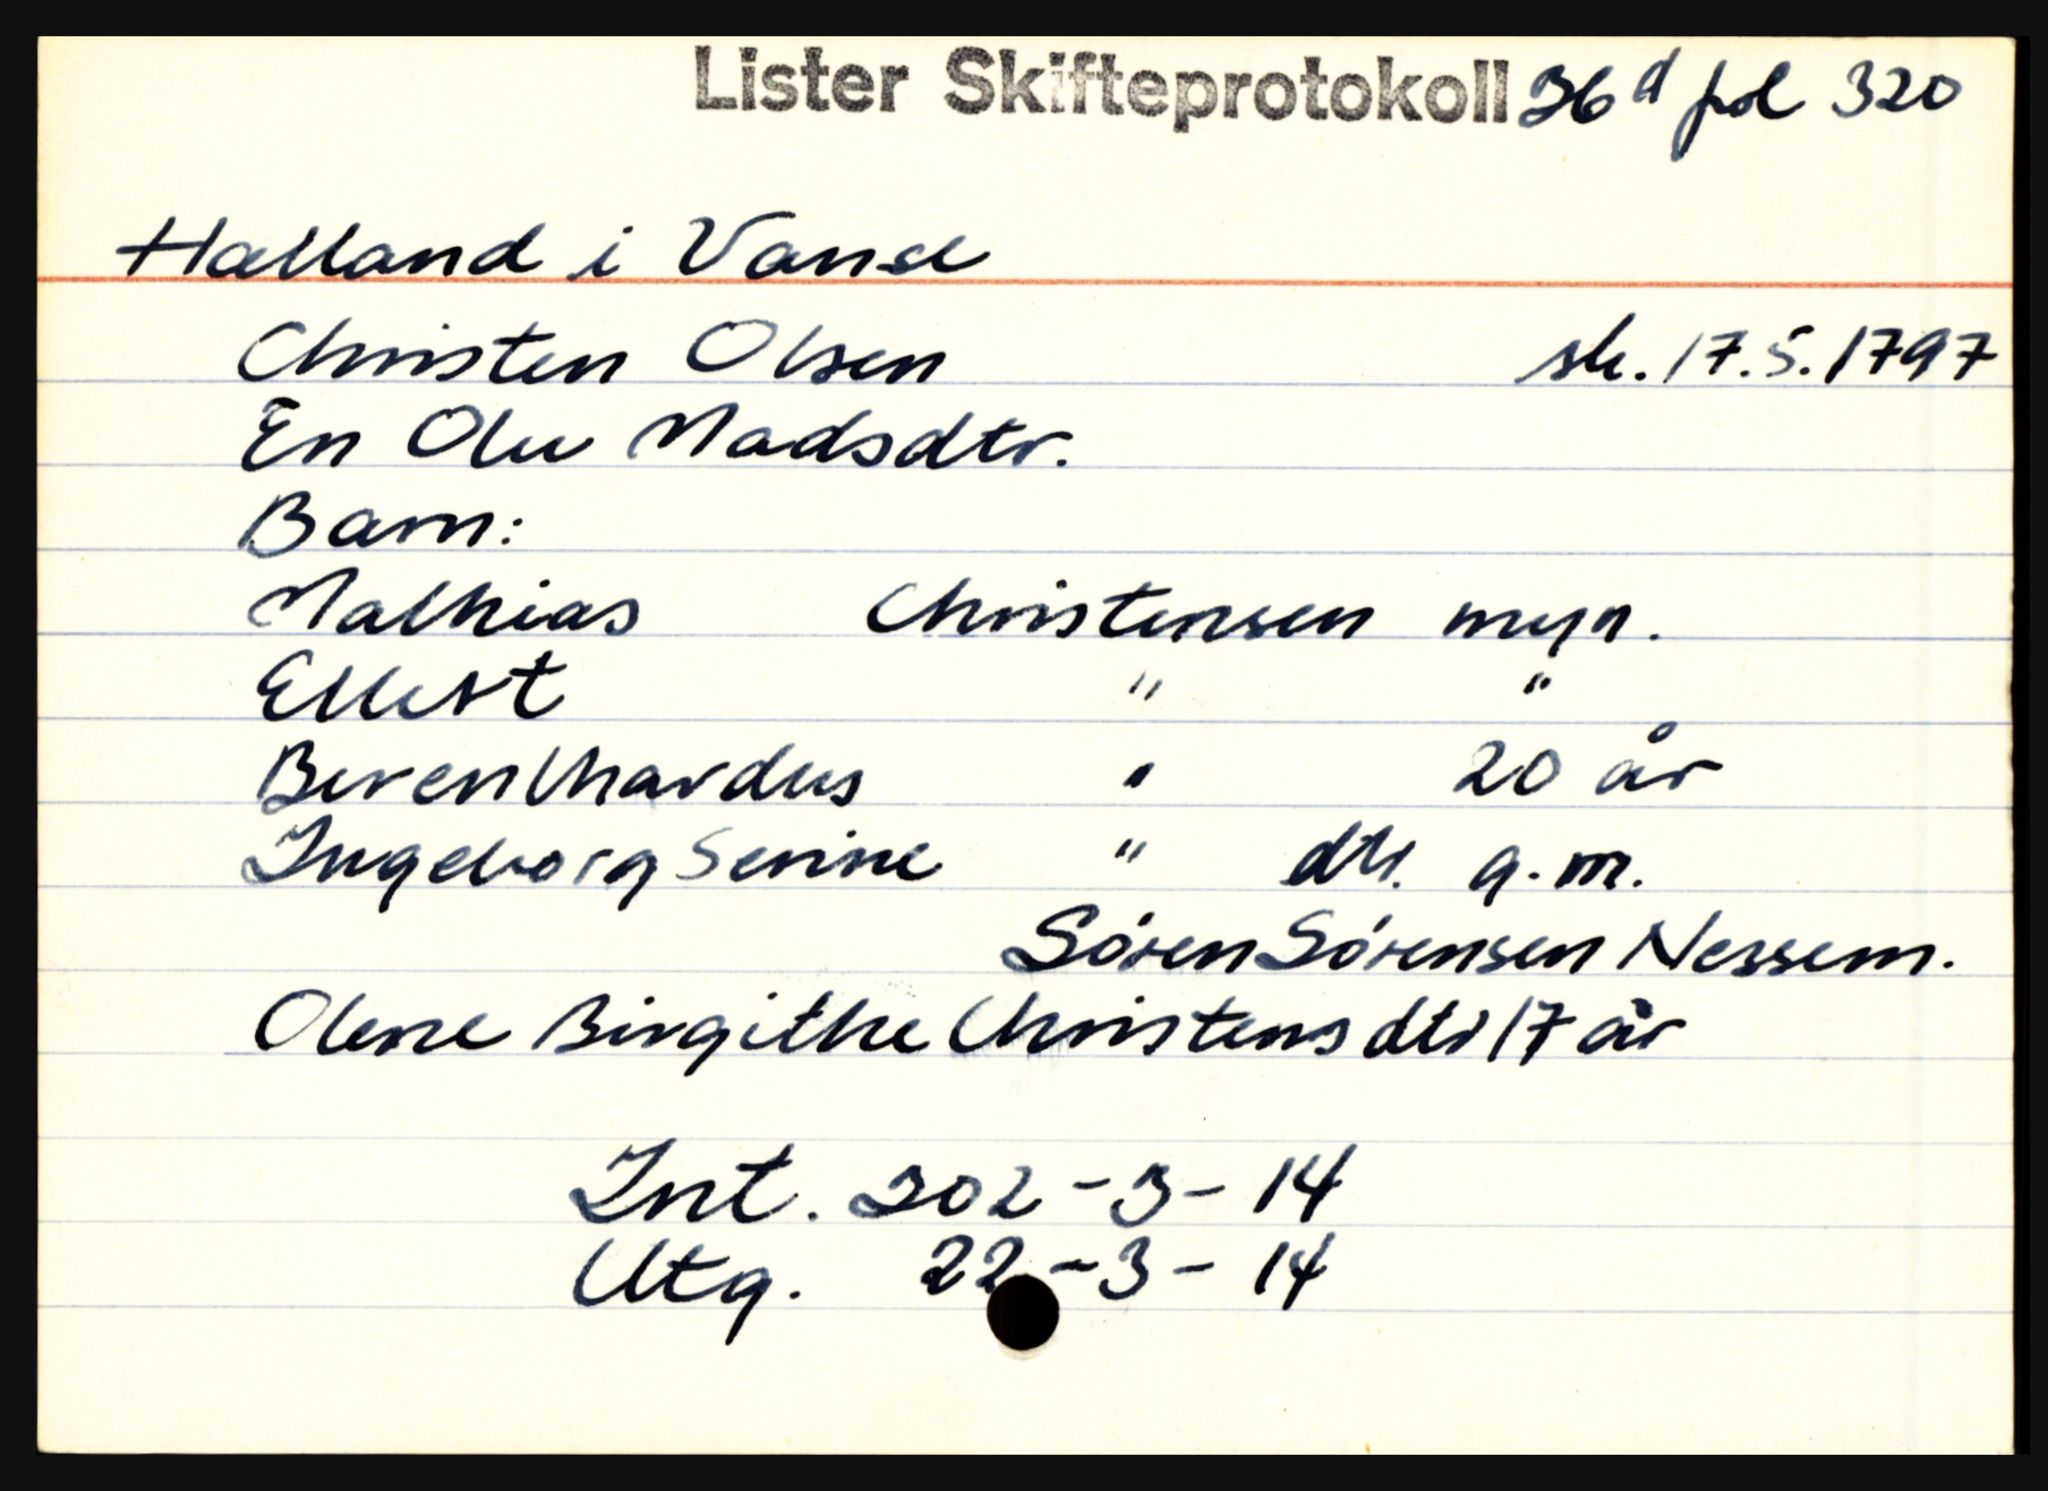 Lister Skifteprotokoll 36 d fol 320
Hælland i Vanse
Christen Olsen sk. 17.5.1797
En Olu Madsdtr.
Barn:
Mathias Christensen myn.
Ellert " "
Berenthardus " 20 år
Ingeborg Serine " dtr. g.m.
Sören Sörensen Nessem.
Olene Birgithe Christens dtr 17 år
Int. 302 - 3 - 14
Utg. 22 - 3 - 14